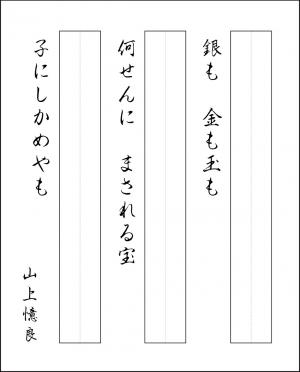 銀も　金も玉も
何せんに　まされる宝
子にしかめやも
山上憶良